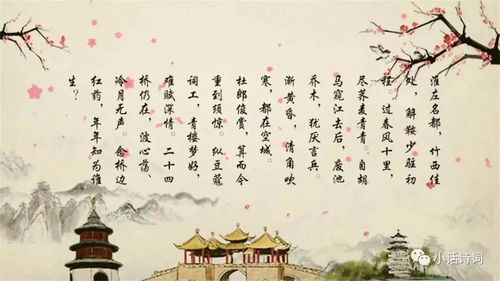 淮左名都，竹西佳
处，解鞍少驻初
程。过春风十里，
尽荠麦青青。自胡
马窥江去后，废池
乔木，犹厌言兵。
渐黄昏，清角吹
寒，都在空城。
杜郎俊赏，算而今
重到须惊。纵豆蔻
词工，青楼梦好，
难赋深情。二十四
桥仍在，波心荡、
冷月无声。念桥边
红药，年年知为谁
生？
小话诗词